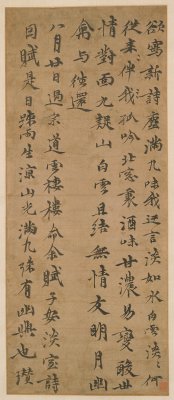 欲寫新詩塵滿几味我迂言淡如水白雲淡淡何
從來伴我孤吟北窗裏酒味甘濃易變酸世
情對面九疑山白雲且結無情友明月幽
禽與往還
八月廿日過宗道雲樓樓命余賦淡室詩
因賦是日疎雨生涼山光滿几殊有幽興也瓚